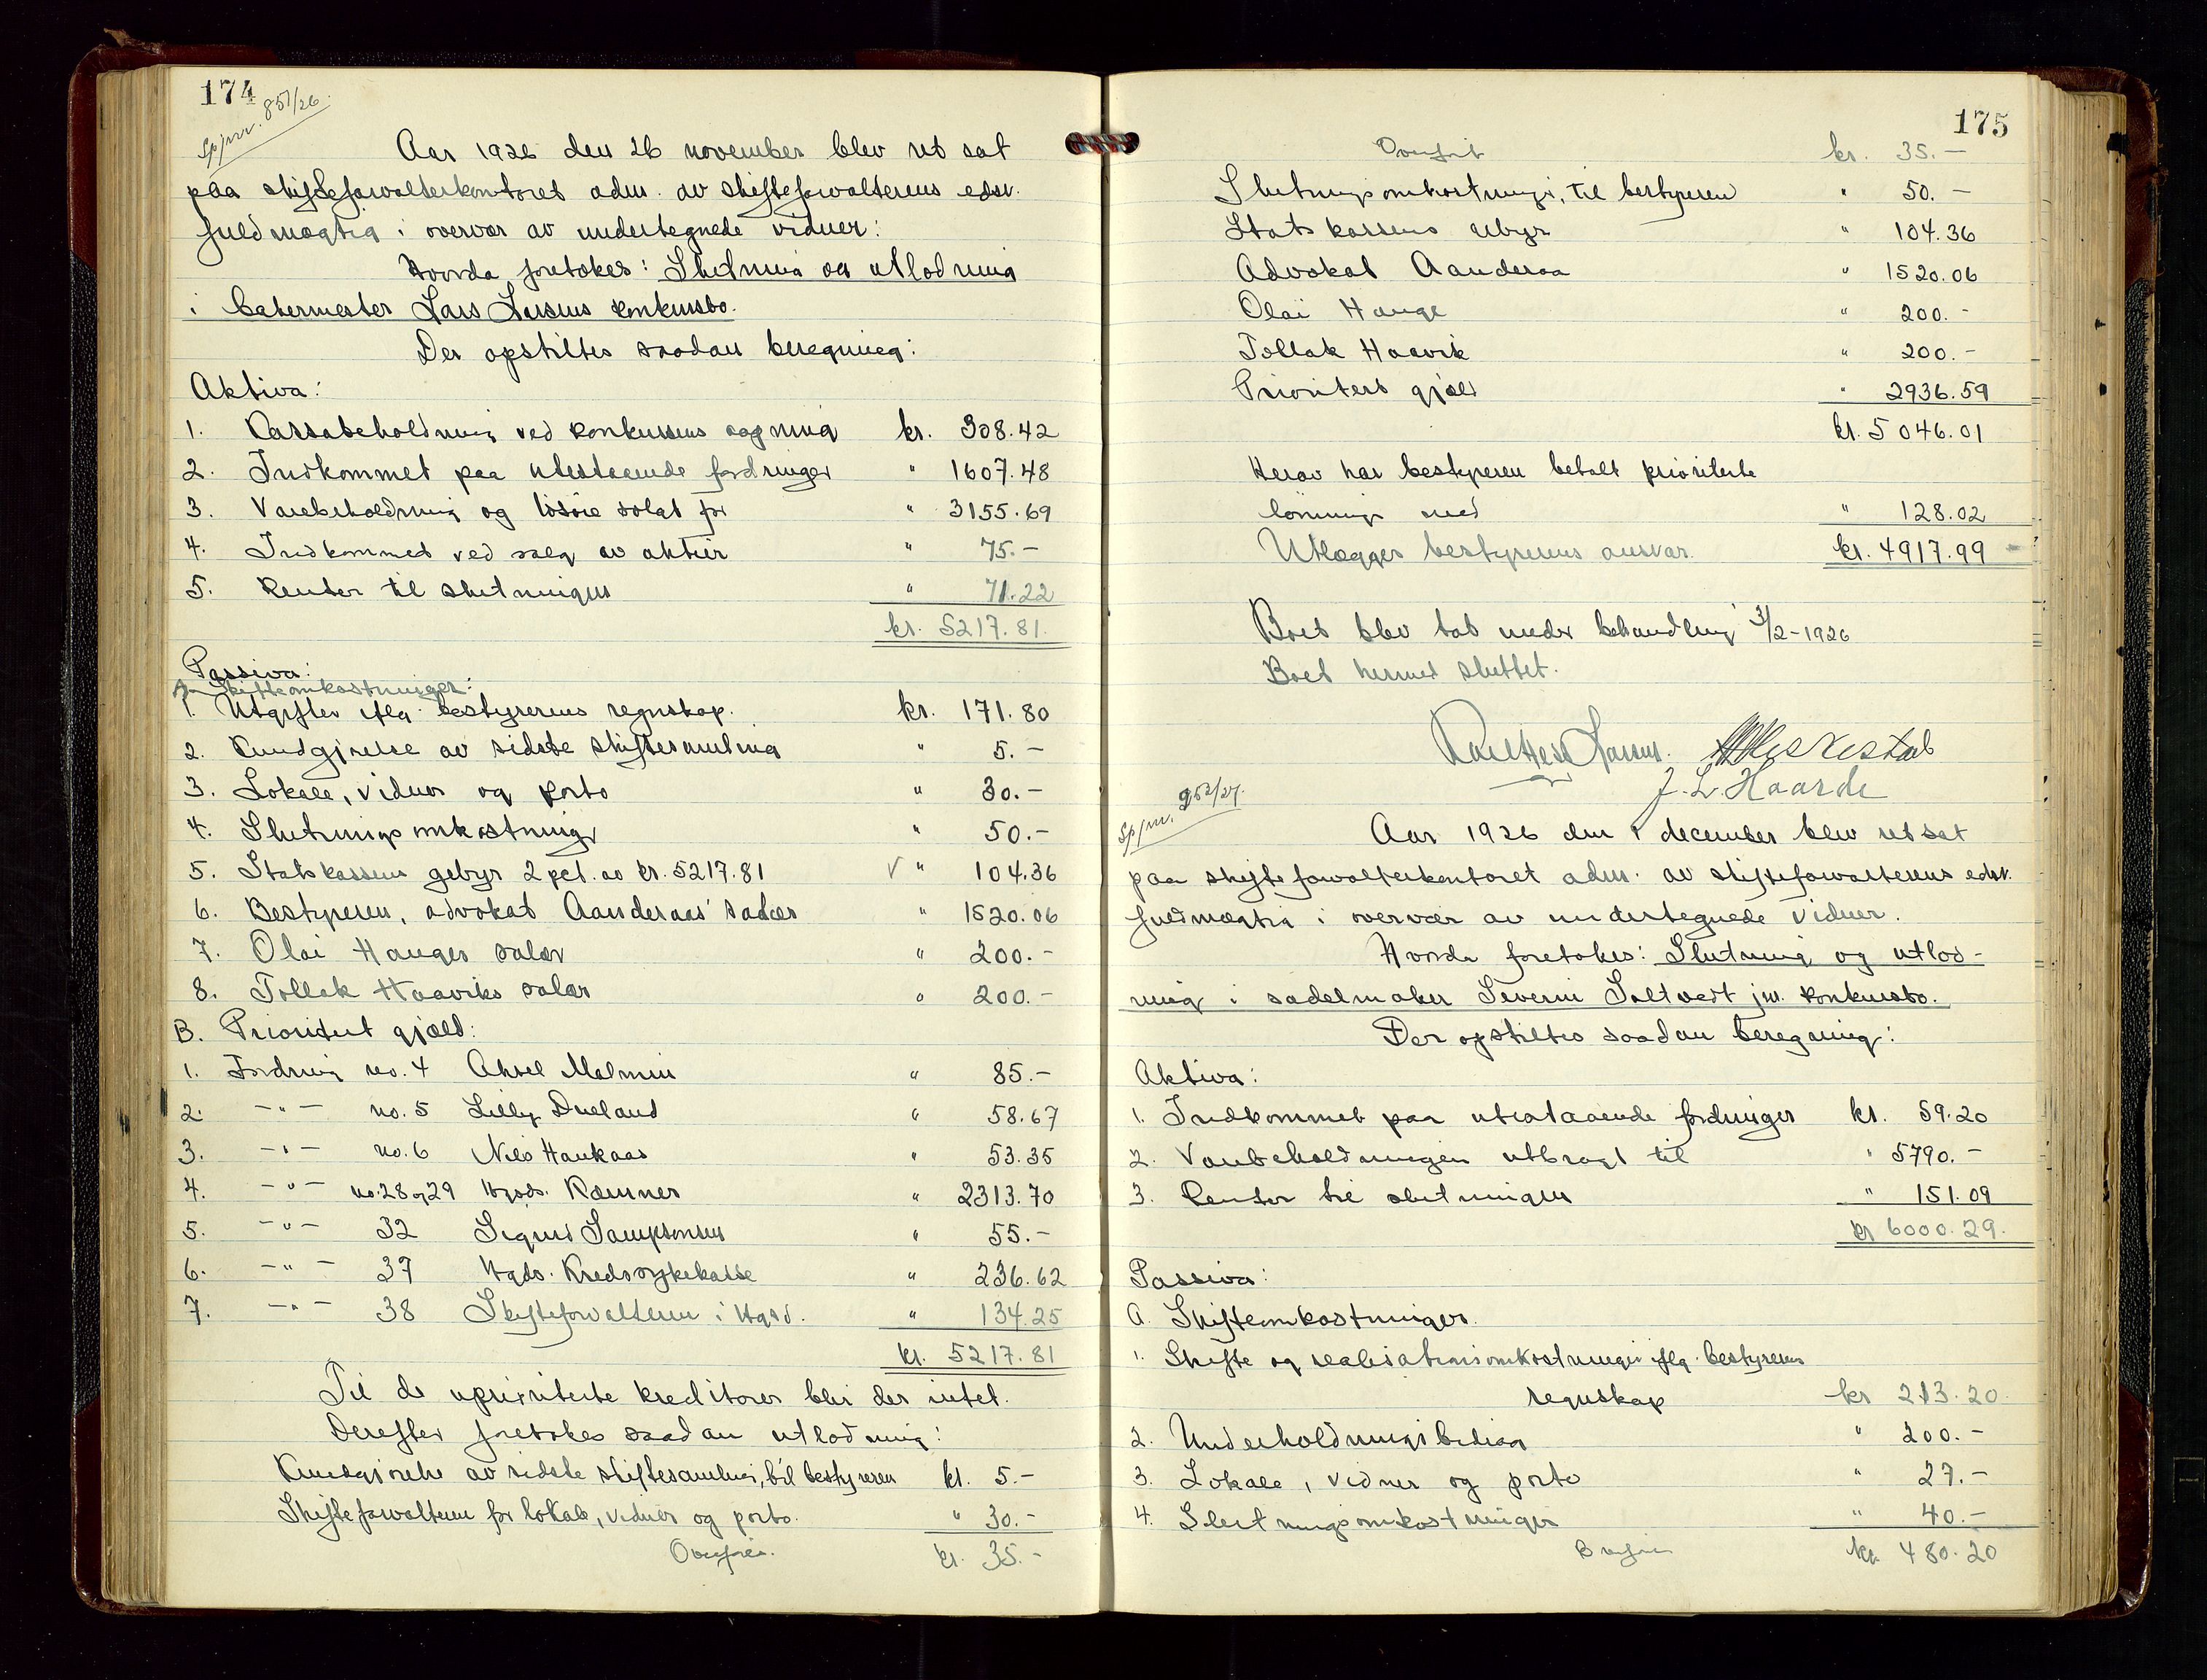 174
Spjnr. 851/26.
Aar 1926 den 26 november blev ret sat
paa skifteforvalterkontoret adm. av skifteforvalterens edsv.
fuldmægtig i overvær av undertegnede vidner:
Hvorda foretokes: Slutning og utlodning
i bakermester Lars Larsens konkursbo.
Der opstiltes saadan beregning:
Aktiva:
1. Kassabeholdning ved konkursens aapning kr. 308.42
2. Indkommet paa utestaaende fordringer " 1607.48
3. Varebeholdning og løsøre solgt for " 3155.69
4. Indkommet ved salg av aktier " 75.-
5. Renter til slutningen " 71.22
kr. 5217.81.
Passiva:
A. Skifteomkostninger:
1. Utgifter iflg. bestyrerens regnskap. kr. 171.80
2. Kundgjørelse av sidste skiftesamling " 5.-
3. Lokale, vidner og porto " 30.-
4. Slutningsomkostninger " 50.-
5. Statskassens gebyr 2 pct. av kr. 5217.81 √ " 104.36
6. Bestyreren, advokat Aanderaas' salær " 1520.06
7. Olai Hauges salær " 200.-
8. Tollak Haaviks salær " 200.-
B. Prioritert gjæld:
1. Fordring no. 4 Aksel Malmin " 85.-
2. -"- no. 5 Lilly Dueland " 58.67
3. -"- no. 6 Nils Haukaas " 53.35
4. -"- no. 28 og 29 Hgsds. Kæmner " 2313.70
5. -"- 32 Sigurd Sampsonsen " 55.-
6. -"- 37 Hgds. Kredssykekasse " 236.62
7. -"- 38 Skifteforvalteren i Hgsd. " 134.25
kr. 5217.81
Til de uprioriterte kreditorer blir der intet.
Derefter foretokes saadan utlodning:
Kundgjørelse av sidste skiftesamling, til bestyreren kr. 5.-
Skifteforvalteren for lokale, vidner og porto. " 30.-
Overføres. kr. 35.-
175
Overført kr. 35.-
Slutningsomkostninger, til bestyreren " 50.-
Statskassens gebyr " 104.36
Advokat Aanderaa " 1520.06
Olai Hauge " 200.-
Tollak Haavik " 200.-
Prioritert gjæld " 2936.59
kr. 5046.01
Herav har bestyreren betalt prioriterte
lønninger med " 128.02
Utlægges bestyrerens ansvar. kr. 4917.99
Boet blev tat under behandling 3/2-1926
Boet hermed sluttet.
J. L. Haarde
Spjnr. 952/27.
Aar 1926 den 1 december blev ret sat
paa skifteforvalterkontoret adm. av skifteforvalterens edsv.
fuldmægtig i overvær av undertegnede vidner.
Hvorda foretokes: Slutning og utlod-
ning i sadelmaker Severin Saltvedt jnr. konkursbo.
Der opstiltes saadan beregning:
Aktiva:
1. Indkommet paa utestaaende fordringer kr. 59.20
2. Varebeholdningen utbragt til " 5790.-
3. Renter til slutningen " 151.09
kr 6000.29.
Passiva:
A. Skifteomkostninger.
1. Skifte og realisationsomkostninger iflg. bestyrerens
regnskap kr 213.20
2. Underholdningsbidrag " 200.-
3. Lokale, vidner og porto " 27.-
4. Slutningsomkostninger " 40.-
kr. 480.20